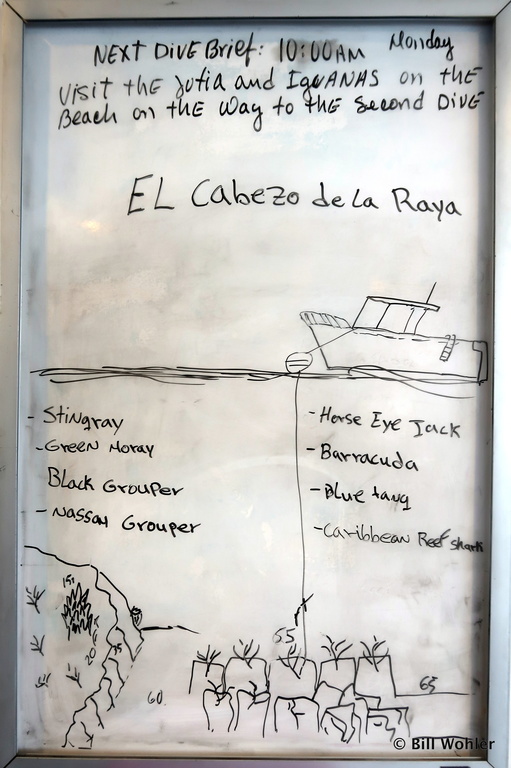 NEXT DIVE Brief: 10:00AM Monday
Visit the Jutia and IGUANAS on the
Beach on the Way to the Second DIVE
EL Cabezo de La Raya
- Stingray
- Green Moray
Black Grouper
- Nassau Grouper
- Horse Eye Jack
- Barracuda
- Blue tang
- Caribbean Reef shark
15'
20'
60
55
65
© Bill Wohler